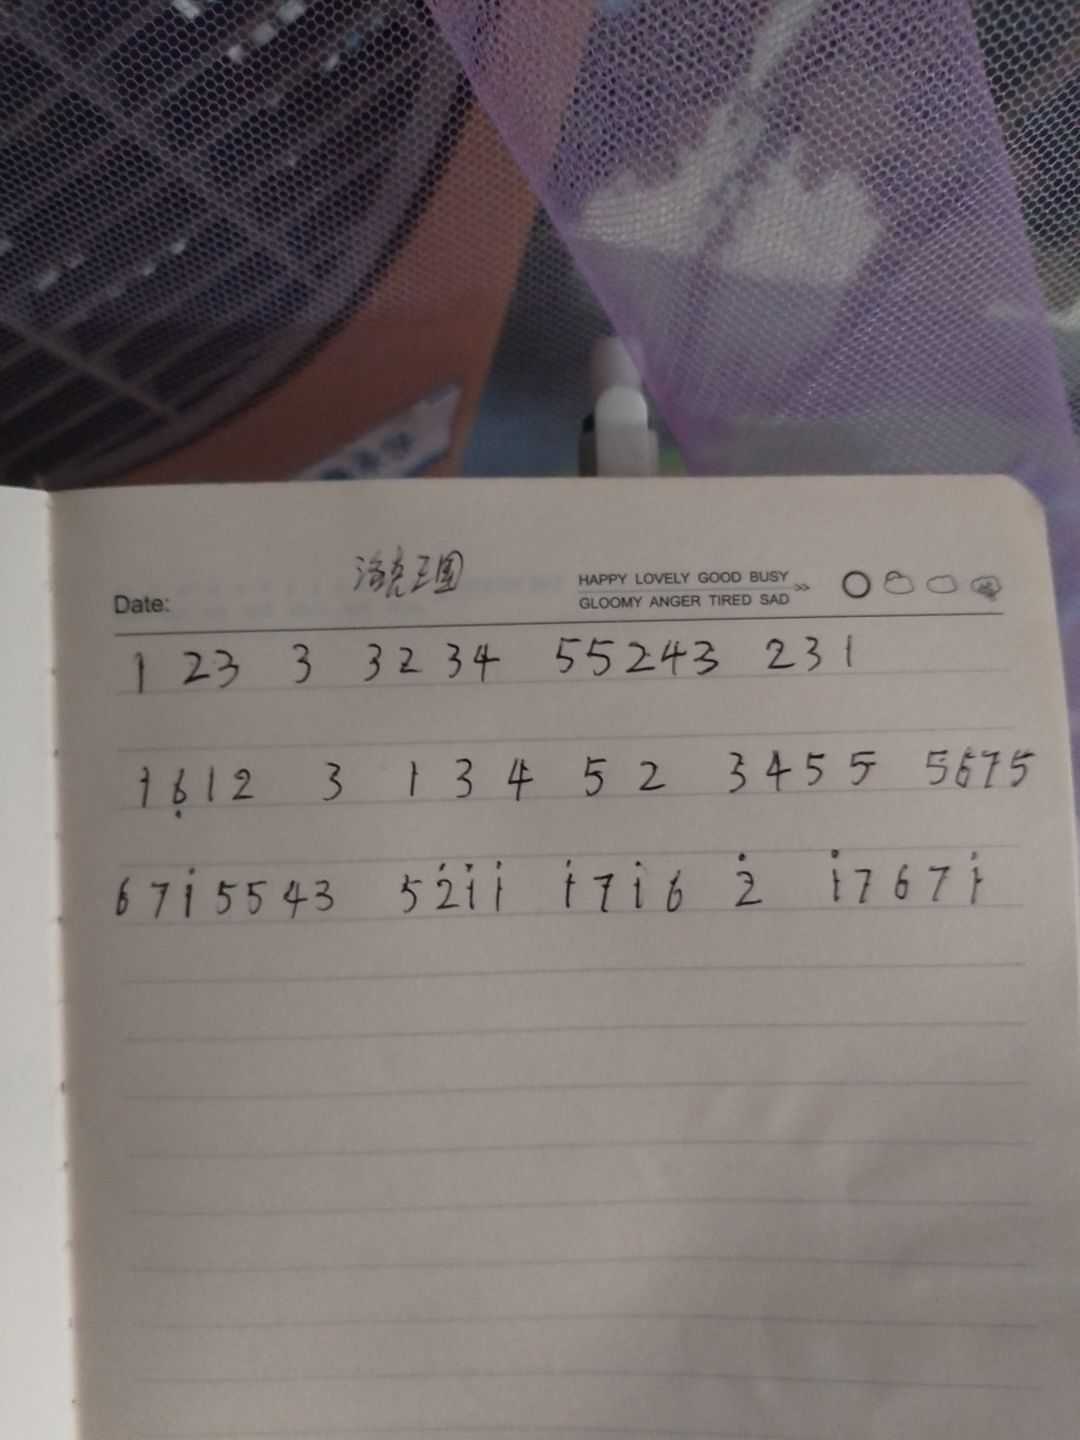 洛克王国
Date:
HAPPY LOVELY GOOD BUSY
GLOOMY ANGER TIRED SAD
1 23 3 32 34 55243 231
1 6̣ 1 2 3 1 3 4 5 2 3 4 5 5 5675
6 7 1̇ 5 5 4 3 5 2̇ 1̇ 1̇ 1̇ 7 1̇ 6 2̇ 1̇ 7 6 7 1̇